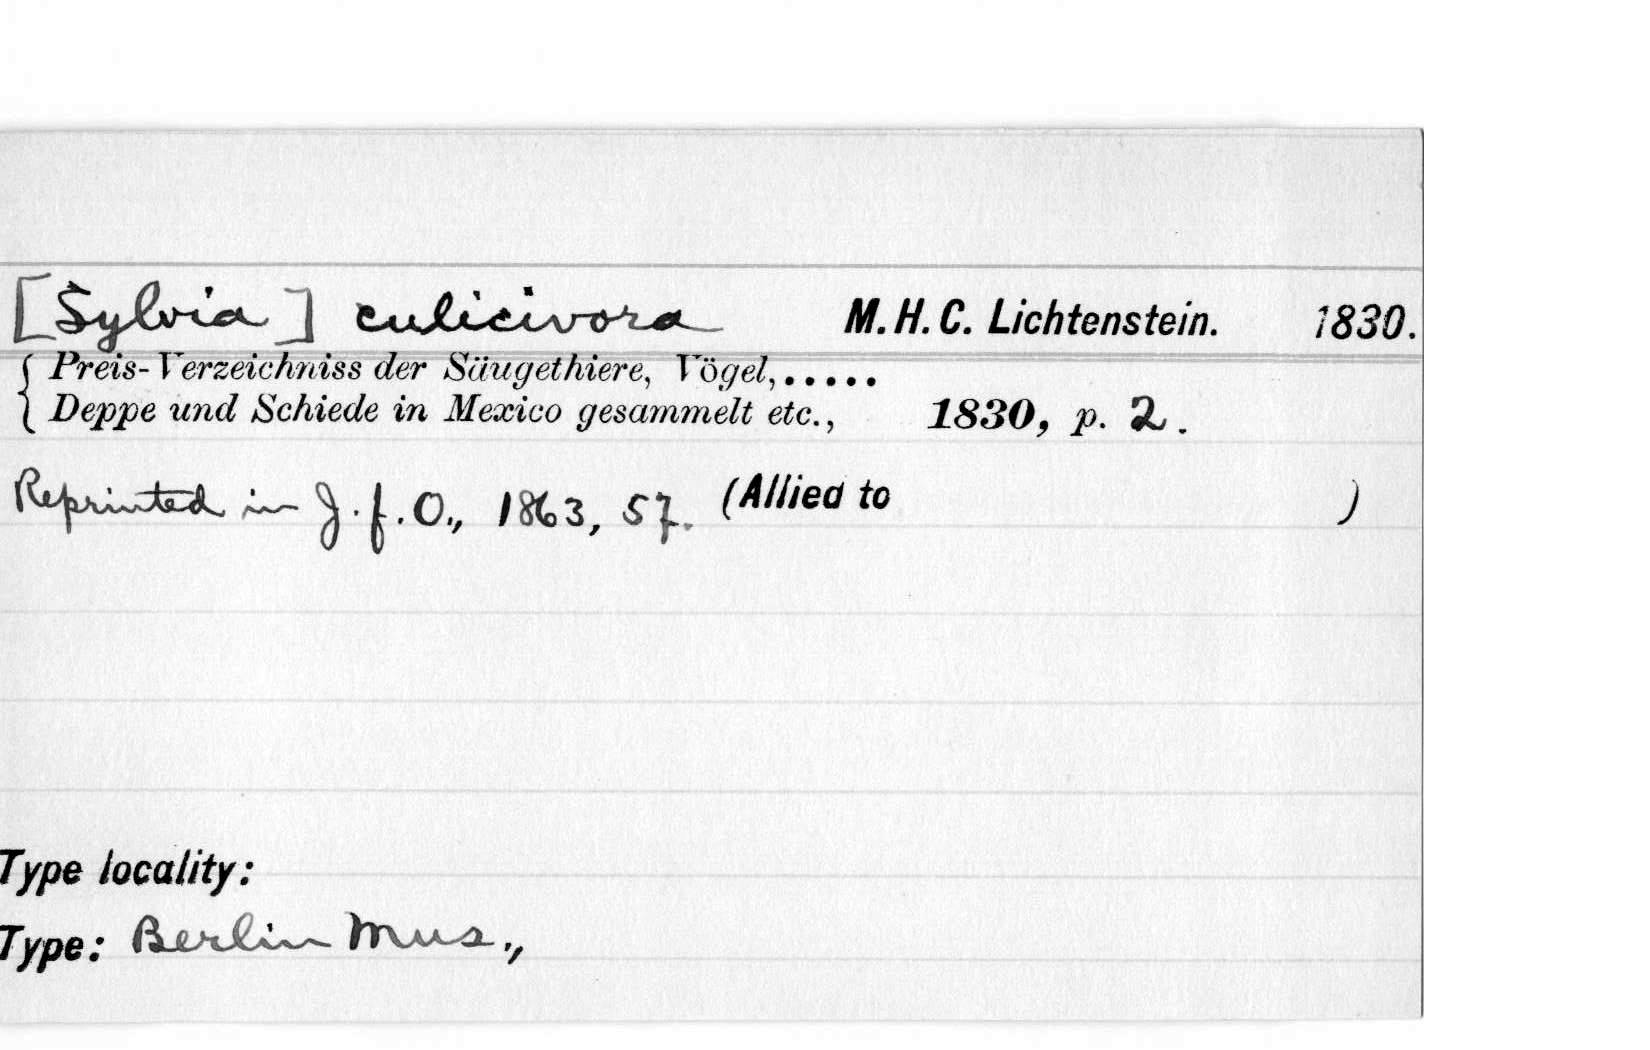 [Sylvia] culicivora M. H. C. Lichtenstein. 1830.
{ Preis-Verzeichniss der Säugethiere, Vögel,.....
Deppe und Schiede in Mexico gesammelt etc., 1830, p. 2.
Reprinted in J. f. O., 1863, 57. (Allied to )
Type locality:
Type: Berlin Mus.,